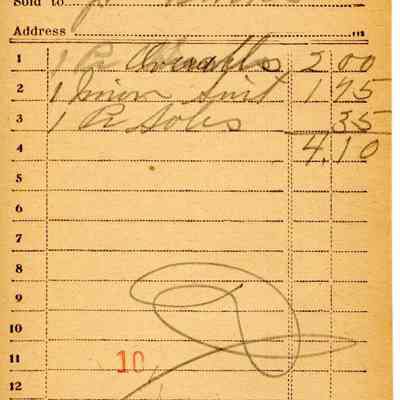 Sold to
Address
1 1 Pr Overalls 2 00
2 1 Union Suit 1 75
3 1 Pr Soles 35
4 4.10
5
6
7
8
9
10
11 10
12